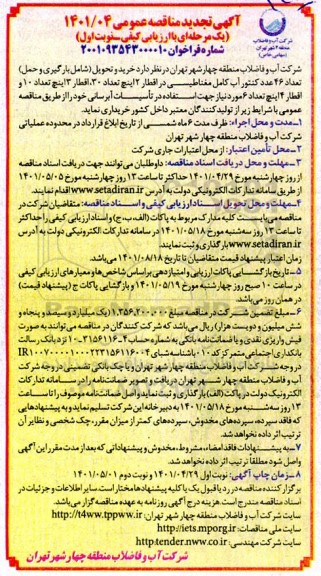 شرکت آب و فاضلاب
منطقه ۴ شهر تهران
(سهامی خاص)
آگهی تجدید مناقصه عمومی ۱۴۰۱/۰۴
(یک مرحله‌ای با ارزیابی کیفی ـ نوبت اول)
شماره فراخوان ۲۰۰۱۰۹۳۵۴۳۰۰۰۰۱۰
شرکت آب و فاضلاب منطقه چهار شهر تهران در نظر دارد خرید و تحویل (شامل بارگیری و حمل)
تعداد ۴۶ عدد کنتور آب کامل مغناطیسی در اقطار ۲ اینچ تعداد ۳۰، اقطار ۳ اینچ تعداد ۱۰ و
اقطار ۴ اینچ تعداد ۶ مورد نیاز جهت استفاده در تأسیسات آبرسانی خود را از طریق مناقصه
عمومی با شرایط زیر از تولیدکنندگان معتبر داخل کشور خریداری نماید.
۱ـ مدت و محل اجراء: ظرف مدت ۶ ماه شمسی از تاریخ ابلاغ قرارداد در محدوده عملیاتی
شرکت آب و فاضلاب منطقه چهار شهر تهران
۲ـ محل تأمین اعتبار: از محل اعتبارات جاری شرکت
۳ـ مهلت و محل دریافت اسناد مناقصه: داوطلبان می‌توانند جهت دریافت اسناد مناقصه
از روز چهارشنبه مورخ ۱۴۰۱/۰۴/۲۹ حداکثر تا ساعت ۱۳ روز چهارشنبه مورخ ۱۴۰۱/۰۵/۰۵
از طریق سامانه تدارکات الکترونیکی دولت به آدرس www.setadiran.ir اقدام نمایند.
۴ـ مهلت و محل تحویل اسناد ارزیابی کیفی و اسناد مناقصه: متقاضیان شرکت در
مناقصه می‌بایست کلیه مدارک مربوط به پاکات (الف، ب، ج) و اسناد ارزیابی کیفی را حداکثر
تا ساعت ۱۳ روز سه‌شنبه مورخ ۱۴۰۱/۰۵/۱۸ در سامانه تدارکات الکترونیکی دولت به آدرس
www.setadiran.ir بارگذاری و ثبت نمایند.
زمان اعتبار پیشنهاد قیمت متقاضیان تا تاریخ ۱۴۰۱/۰۸/۱۸ می‌باشد.
۵ـ تاریخ بازگشایی پاکات ارزیابی و امتیازدهی براساس شاخص‌ها و معیارهای ارزیابی کیفی
در ساعت ۱۰ صبح روز چهارشنبه مورخ ۱۴۰۱/۰۵/۱۹ و بازگشایی پاکات ج (پیشنهاد قیمت)
در همان روز می‌باشد.
۶ـ مبلغ تضمین شرکت در مناقصه مبلغ ۱.۳۵۶.۲۰۰.۰۰۰ (یک میلیارد و سیصد و پنجاه و
شش میلیون و دویست هزار) ریال می‌باشد که شرکت کنندگان در مناقصه می‌توانند به صورت
فیش واریزی نقدی و یا ضمانت‌نامه بانکی به شماره حساب نزد بانک رسالت
بانکداری اجتماعی متمرکز کد ۱۰ با شناسه شبای
در وجه شرکت آب و فاضلاب منطقه چهار شهر تهران و یا چک بانکی تضمینی در وجه شرکت
آب و فاضلاب منطقه چهار شهر تهران دریافت و تصویر ضمانت‌نامه را در سامانه تدارکات
الکترونیک دولت در پاکت (الف) بارگذاری و ثبت نماید و اصل ضمانت‌نامه موصوف را تا ساعت
۱۳ روز سه‌شنبه مورخ ۱۴۰۱/۰۵/۱۸ به دبیرخانه این شرکت تسلیم نماید و به پیشنهادهایی
که فاقد سپرده، سپرده‌های مخدوش، سپرده‌های کمتر از میزان مقرر، چک شخصی و نظایر آن
ترتیب اثر داده نخواهد شد.
۷ـ به پیشنهادات فاقد امضاء، مشروط، مخدوش و پیشنهاداتی که بعد از مدت مقرر این آگهی
واصل شود مطلقاً ترتیب اثر داده نخواهد شد.
۸ـ زمان چاپ آگهی: نوبت اول ۱۴۰۱/۰۴/۲۹ و نوبت دوم ۱۴۰۱/۰۵/۰۱
برگزار کننده مناقصه در رد یا قبول یک یا کلیه پیشنهادها مختار است. سایر اطلاعات و جزئیات در
اسناد مناقصه مندرج است. هزینه درج آگهی روزنامه به عهده مناقصه گزار می‌باشد.
شرکت آب و فاضلاب منطقه چهار شهر تهران: http://t4ww.tppww.ir
سایت ملی مناقصات: http://iets.mporg.ir
شرکت مهندسی: http:tender.nww.co.ir
شرکت آب و فاضلاب منطقه چهار شهر تهران